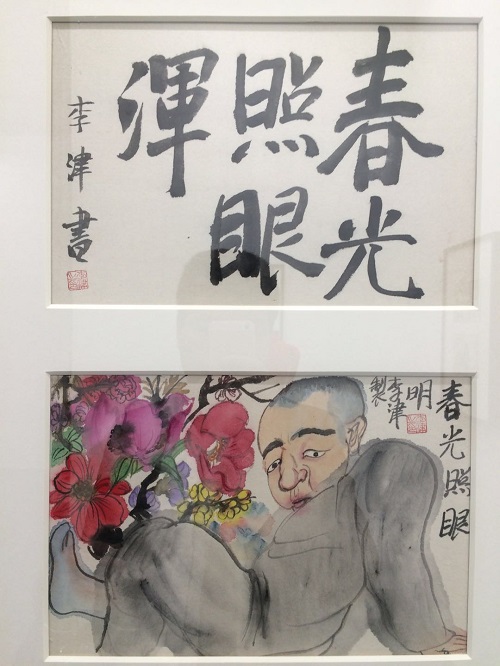 春光
照眼
渾
李津書
春光照眼
明
李津製